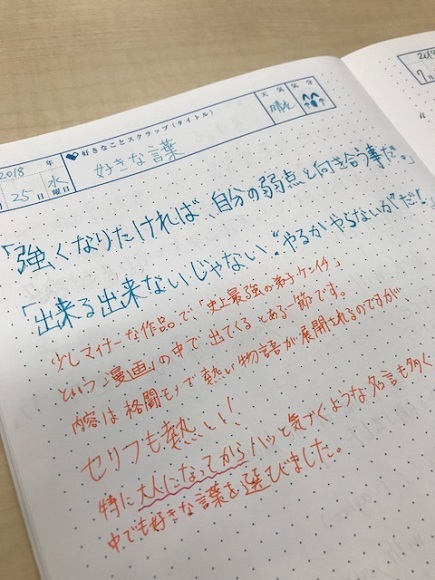 2018 年
25日 水曜日
好きなことスクラップ(タイトル)
好きな言葉
天気
晴れ
気分
「強くなりたければ、自分の弱点と向き合う事だ。」
「出来る出来ないじゃない!"やるかやらないか"だ!」
少しマイナーな作品で、「史上最強の弟子ケンイチ」
という漫画の中で出てくるとある一節です。
内容は格闘モノで熱い物語が展開されるのですが
セリフも熱いい!
特に大人になってからハッと気づくような名言も多く
中でも好きな言葉を選びました。
7月